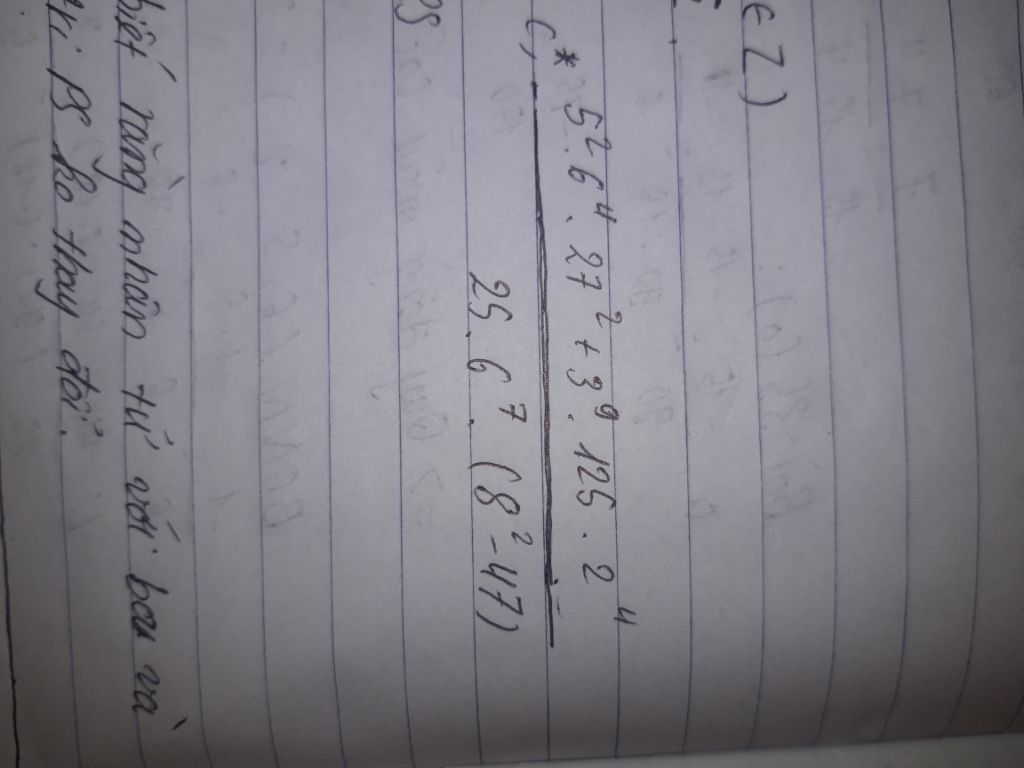 ∈ Z)
c, * 5². 6⁴. 27² + 3⁹. 125. 2⁴
25. 6⁷. (8² - 47)
biết rằng nhân tử với ba và
thì PS ko thay đổi.